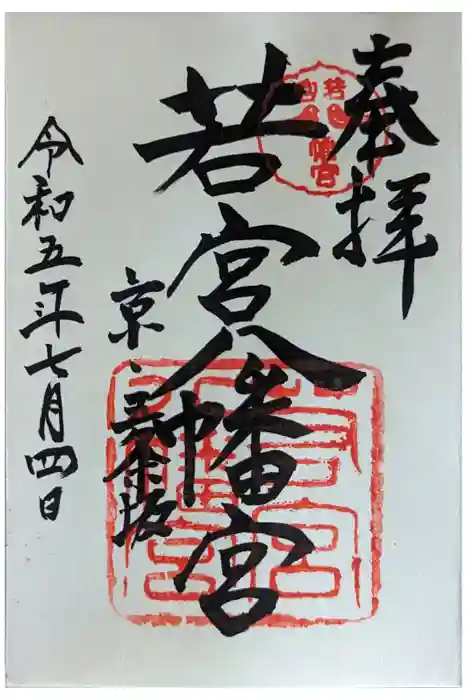 奉拝
若宮八幡宮
京、五条坂
令和五年七月四日
若宮八幡宮